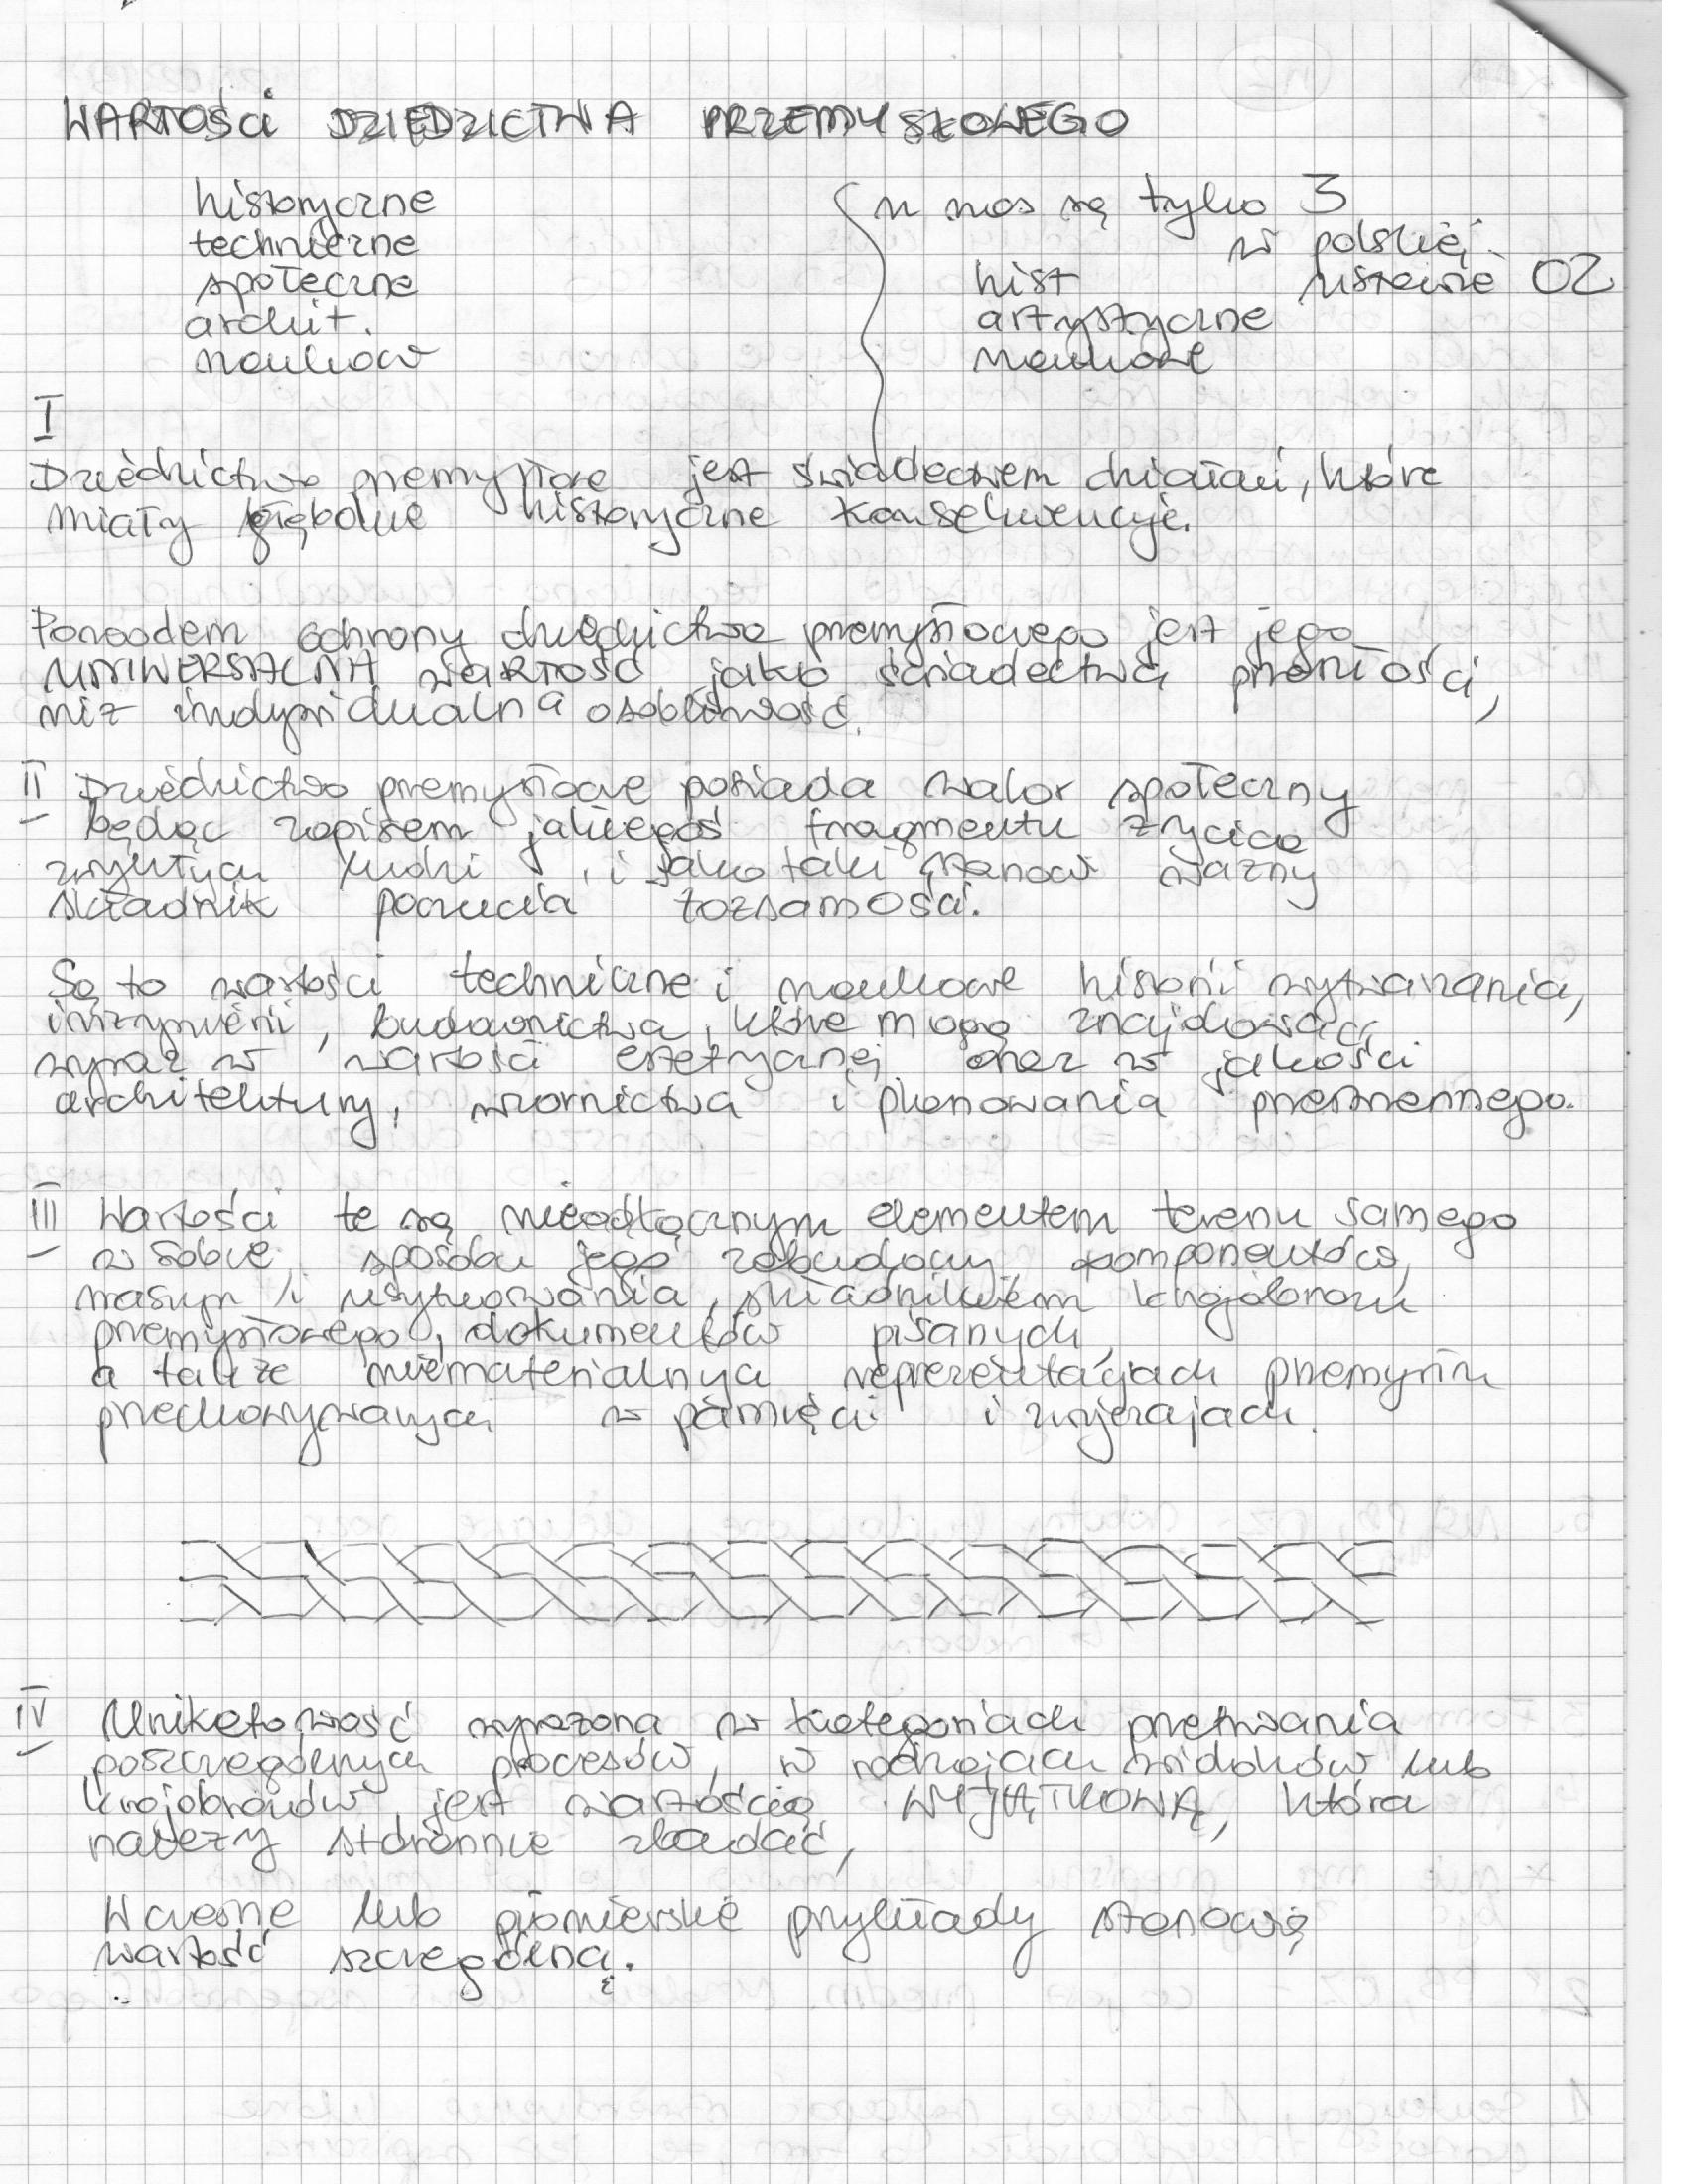 WARTOŚCI DZIEDZICTWA PRZEMYSŁOWEGO
historyczne
techniczne
społeczne
archit.
naukow
u nas są tylko 3
w polskiej
ustawie OZ
hist
artystyczne
naukowe
I
Dziedzictwo przemysłowe jest świadectwem działań, które
miały głębokie historyczne konsekwencje.
Powodem ochrony dziedzictwa przemysłowego jest jego
UNIWERSALNA WARTOŚĆ jako świadectwa przeszłości,
niż indywidualna osobliwość.
II Dziedzictwo przemysłowe posiada walor społeczny
będąc zapisem jakiegoś fragmentu życia
zwykłych ludzi, i jako taki stanowi ważny
składnik poczucia tożsamości.
Są to wartości techniczne i naukowe historii wytwarzania,
inżynierii, budownictwa, które mogą znajdować
wyraz w wartości estetycznej oraz w jakości
architektury, wzornictwa i planowania przestrzennego.
III Wartości te są nieodłącznym elementem terenu samego
w sobie, sposobu jego zabudowy, komponentów,
maszyn i usytuowania, składnikiem krajobrazu
przemysłowego, dokumentów pisanych,
a także niematerialnych reprezentacjach przemysłu
przechowywanych w pamięci i zwyczajach.
IV Unikatowość wyrażona w kategoriach przetrwania
poszczególnych procesów, w rodzajach widoków lub
krajobrazów jest wartością WYJĄTKOWĄ, która
należy starannie zbadać,
Wczesne lub pionierskie przykłady stanowią
wartość szczególną.